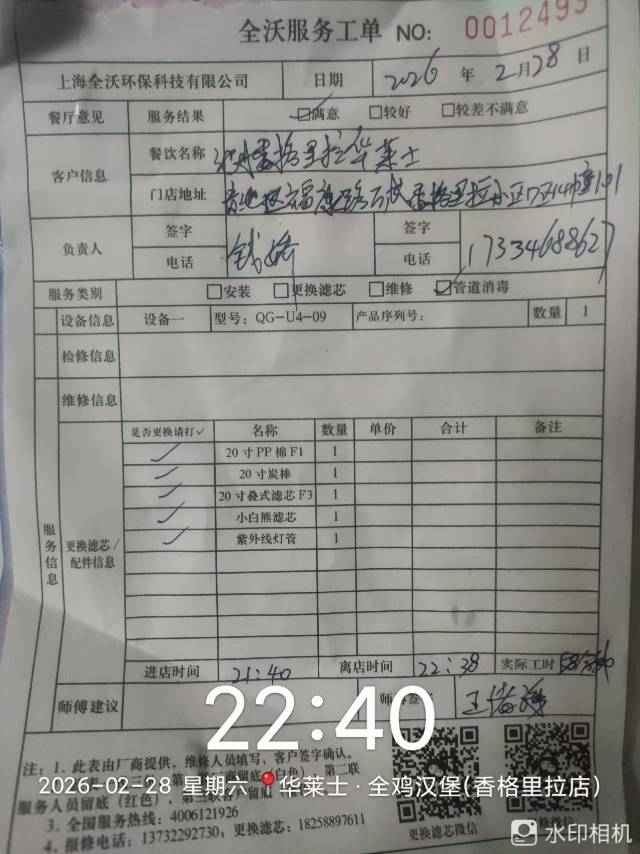 全沃服务工单 NO: 0012493
上海全沃环保科技有限公司 日期 2026 年 2 月 28 日
餐厅意见 服务结果 ☑满意 □较好 □较差不满意
客户信息 餐饮名称 香格里拉华莱士
门店地址 香格里拉小区
负责人 签字 签字
电话 电话 17334688627
服务类别 □安装 □更换滤芯 □维修 ☑管道消毒
设备信息 设备一 型号: QG-U4-09 产品序列号: 数量 1
检修信息
维修信息
是否更换请打✓ 名称 数量 单价 合计 备注
✓ 20寸PP棉F1 1
✓ 20寸炭棒 1
✓ 20寸叠式滤芯F3 1
✓ 小白熊滤芯 1
✓ 紫外线灯管 1
服务信息
更换滤芯/配件信息
进店时间 21:40 离店时间 22:38 实际工时 58分钟
师傅建议
22:40
注: 1. 此表由厂商提供, 维修人员填写, 客户签字确认。
2026-02-28 星期六 华莱士·全鸡汉堡(香格里拉店)
服务人员留底(红色),
3. 全国服务热线: 4006121926
4. 报修电话: 13732292730; 更换滤芯: 18258897611
更换滤芯微信
水印相机